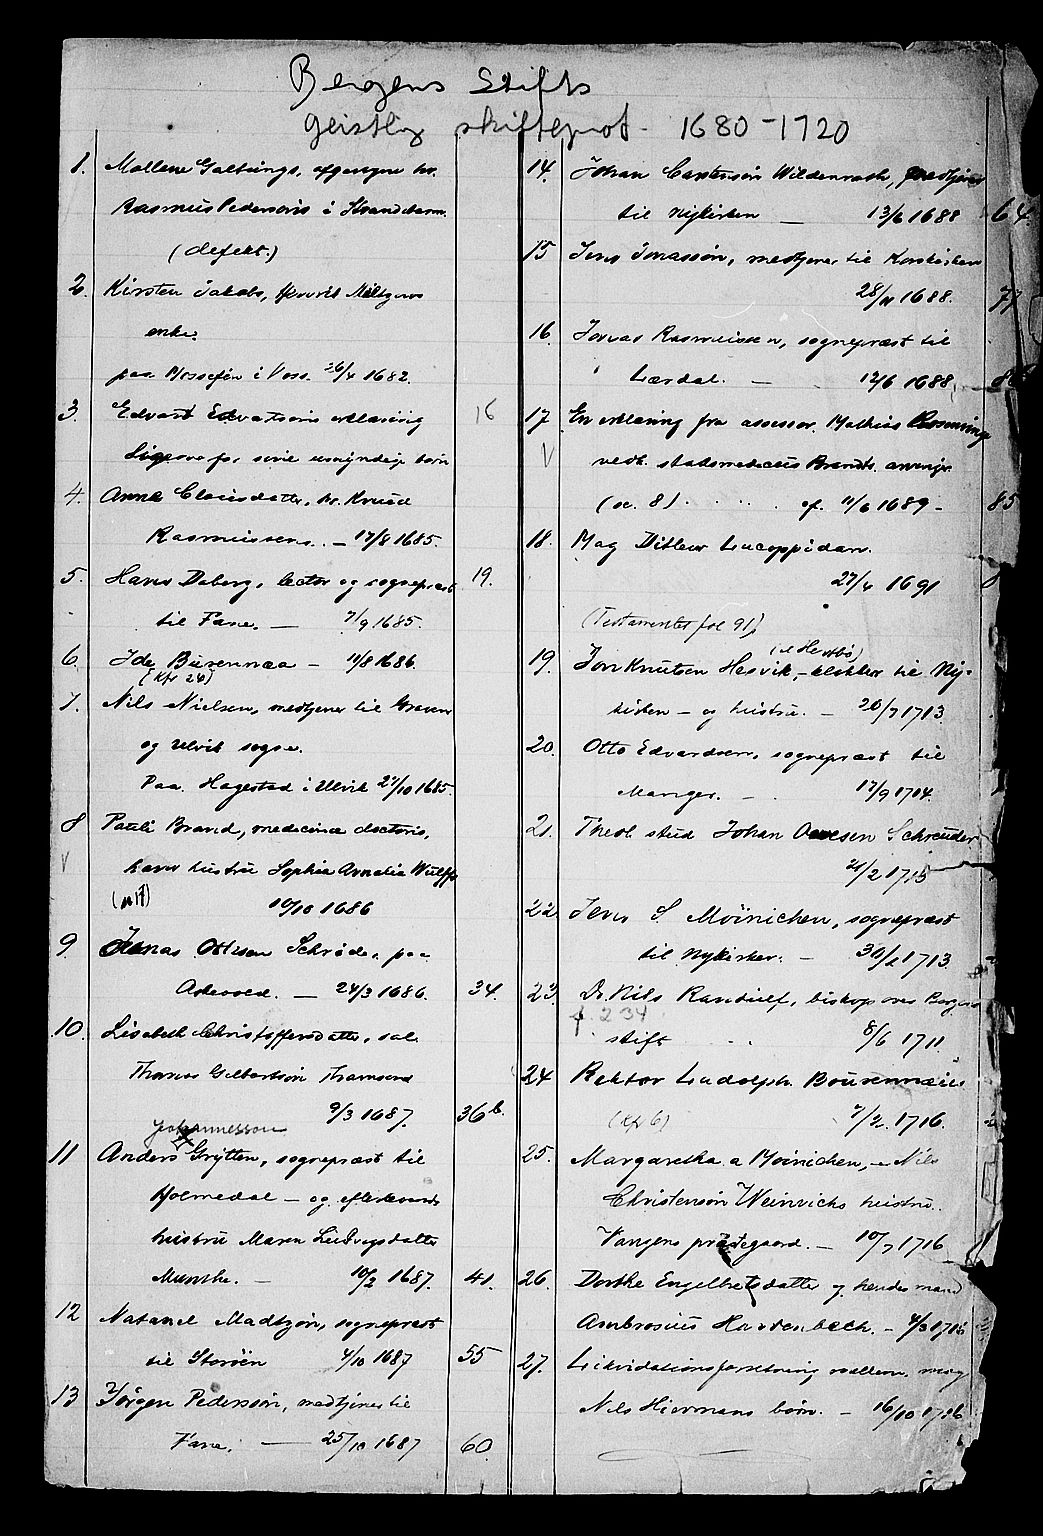 Bergens Stifts
geistlig skifteprot. 1680-1720
1. Mallene Galtungs, afgangne hr.
Rasmus Pedersøns i Strandebarm.
(defekt.)
2. Kirsten Jakobs, Henrik Miltzows
enke.
paa Mossefin i Voss. 26/4 1682.
3. Edvard Edvartsøns erklæring 16
for sine umyndige børn
4. Anna Clausdatter, hr. Knud
Rasmussens. - 17/8 1685.
5. Hans Deberg, lector og sogneprest 19.
til Fane. - 7/9 1685.
6. Ide Busennæa - 11/8 1686.
(Kfr 24)
7. Nils Nielsen, medtjener til Graven
og Ulvik sogne.
Paa Hagestad i Ulvik 27/10 1685.
8 Pauli Brand, medicinæ doctoris,
V hans hustru Sophia Amalia Wulffs
(nr 17) 10/10 1686
9. Jonas Ottesen Schrøder paa
Askevold. - 24/3 1686. 34.
10. Lisebeth Christoffersdatter, sal.
Thomas Gilbertsøn Thamsens
9/3 1687. 36b.
Johannesson
11 Anders Grytten, sogneprest til
Holmedal - og efterlevende
hustru Maren Ludvigsdatter
Munthe. - 10/2 1687. 41.
12 Natanel Madtzøn, sogneprest
til Storøen 4/10 1687 55
13 Jørgen Pedersøn, medtjener til
Fane. - 25/10 1687 60.
14. Johan Carstensøn Wildenrath, medtjener
til Nykirken - 13/6 1688 64.
15 Jens Jonassøn, medtjener til Korskirken
28/11 1688. 77
16. Jonas Rasmussen, sogneprest til
Lærdal. - 12/6 1688.
17. En erklæring fra assessor Mathias
V vedk. stadsmedicus Brandts arvinger
(nr. 8) . . . . af 11/6 1689 - 85
18. Mag Ditlew Lucoppidan.
27/4 1691
(Testamentet fol 91)
(el Hestbø)
19. Jon Knutsen Hesvik, - klokker til Ny-
kirken - og hustru. - 20/7 1713.
20. Otto Edvardsen, sogneprest til
Manger. - 17/9 1714.
21. Theol. stud Johan Ovesen Schreuder
21/2 1715
22 Jens S. Møinichen, sogneprest
til Nykirken. - 1713.
23. Dr Nils Randulf, biskop over Bergens
f. 234
stift . . 8/6 1711.
24 Rektor Ludolph. Bousennæus
(Kfr 6) 7/2. 1716.
25. Margaretha a Møinichen, - Nils
Christensøn Weinwichs hustru.
Vangens prestegaard. - 10/7 1716
26. Dorthe Engelbretsdatter og hendes mand
Ambrosius Hardenbeck. - 4/3 1716
27. Likvidationsforretning mellem mag
Nils Hiermans børn. - 16/10 1716